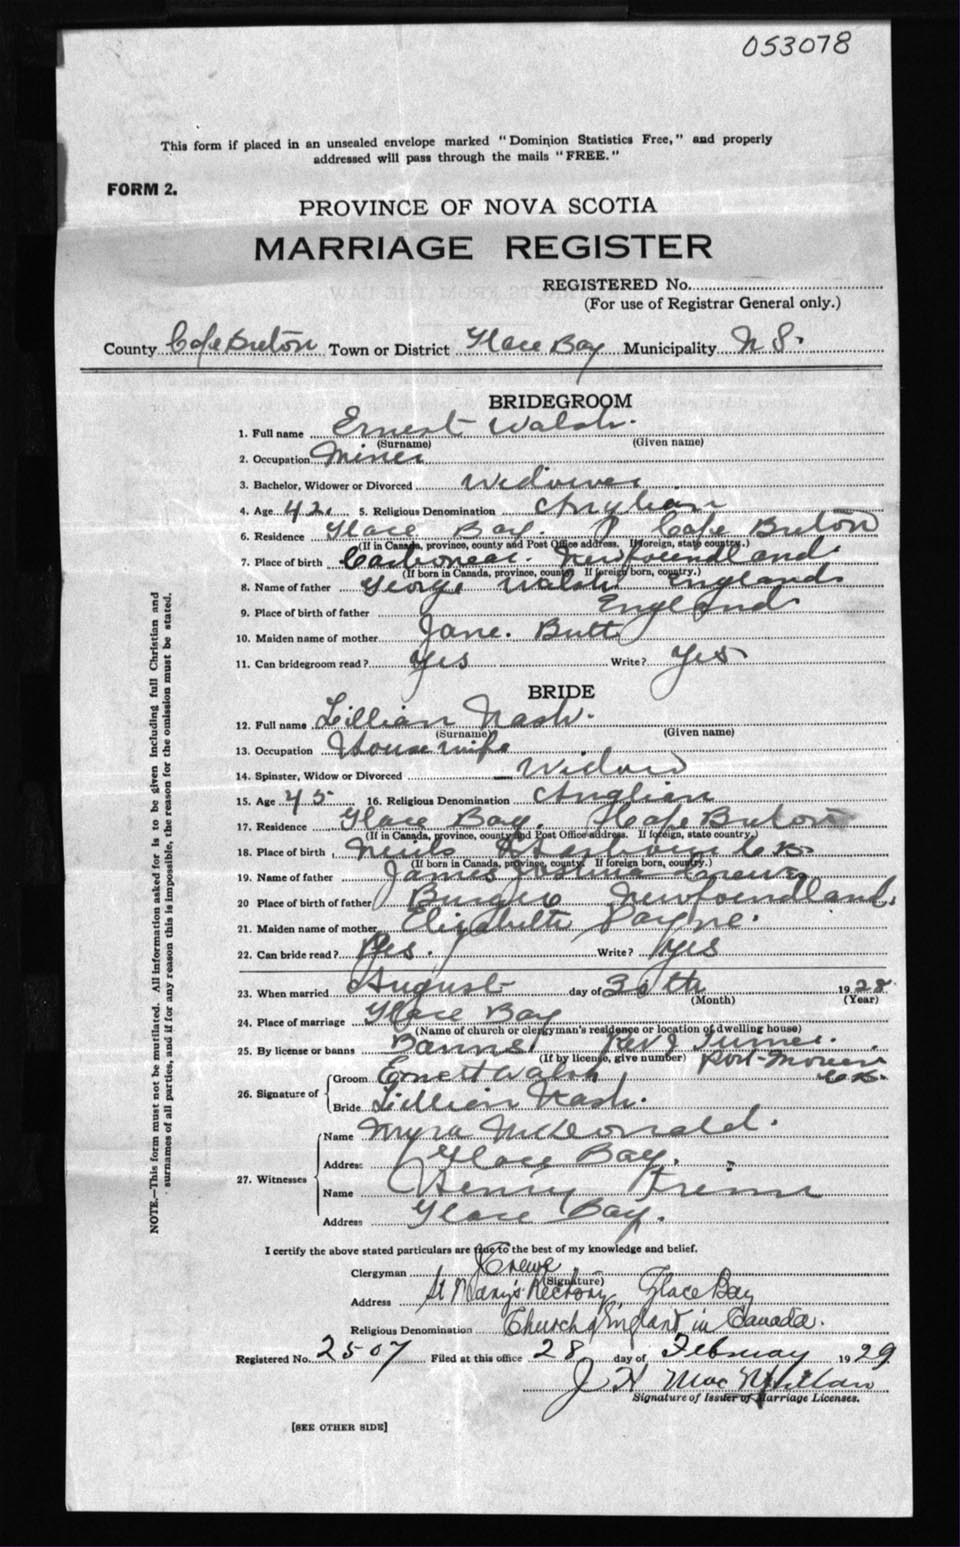 053078
This form if placed in an unsealed envelope marked "Dominion Statistics Free," and properly
addressed will pass through the mails "FREE."
FORM 2.
PROVINCE OF NOVA SCOTIA
MARRIAGE REGISTER
REGISTERED No.
(For use of Registrar General only.)
County Cape Breton Town or District Glace Bay Municipality N S.
BRIDEGROOM
1. Full name Ernest Walsh.
(Surname) (Given name)
2. Occupation Miner
3. Bachelor, Widower or Divorced Widower
4. Age 42 5. Religious Denomination Anglian
6. Residence Glace Bay. Cape Breton
(If in Canada, province, county and Post Office address. If foreign, state country.)
7. Place of birth Carbonear. Newfoundland.
(If born in Canada, province, county. If foreign born, country.)
8. Name of father George Walsh England
9. Place of birth of father England
10. Maiden name of mother Jane. Butt
11. Can bridegroom read? Yes Write? Yes
BRIDE
12. Full name Lillian Nash.
(Surname) (Given name)
13. Occupation Housewife
14. Spinster, Widow or Divorced Widow
15. Age 45 16. Religious Denomination Anglian
17. Residence Glace Bay. Cape Breton
(If in Canada, province, county and Post Office address. If foreign, state country.)
18. Place of birth C B.
(If born in Canada, province, county. If foreign born, country.)
19. Name of father James
20 Place of birth of father Burgeo Newfoundland.
21. Maiden name of mother Elizabeth Payne.
22. Can bride read? Yes. Write? Yes
23. When married August day of 30th 1928
(Month) (Year)
24. Place of marriage Glace Bay
(Name of church or clergyman's residence or location of dwelling house)
25. By license or banns Banns Rev J Turner.
(If by license, give number) Port Morien
C B.
26. Signature of Groom Ernest Walsh
Bride Lillian Nash.
27. Witnesses Name Myra McDonald.
Address Glace Bay.
Name Henry
Address Glace Bay.
I certify the above stated particulars are true to the best of my knowledge and belief.
Clergyman J Crewe
(Signature)
Address St Mary's Rectory, Glace Bay
Religious Denomination Church of England in Canada.
Registered No. 2507 Filed at this office 28 day of February 1929.
J H MacMillan
Signature of Issuer of Marriage Licenses.
[SEE OTHER SIDE]
NOTE.—This form must not be mutilated. All information asked for is to be given including full Christian and
surnames of all parties, and if for any reason this is impossible, the reason for the omission must be stated.